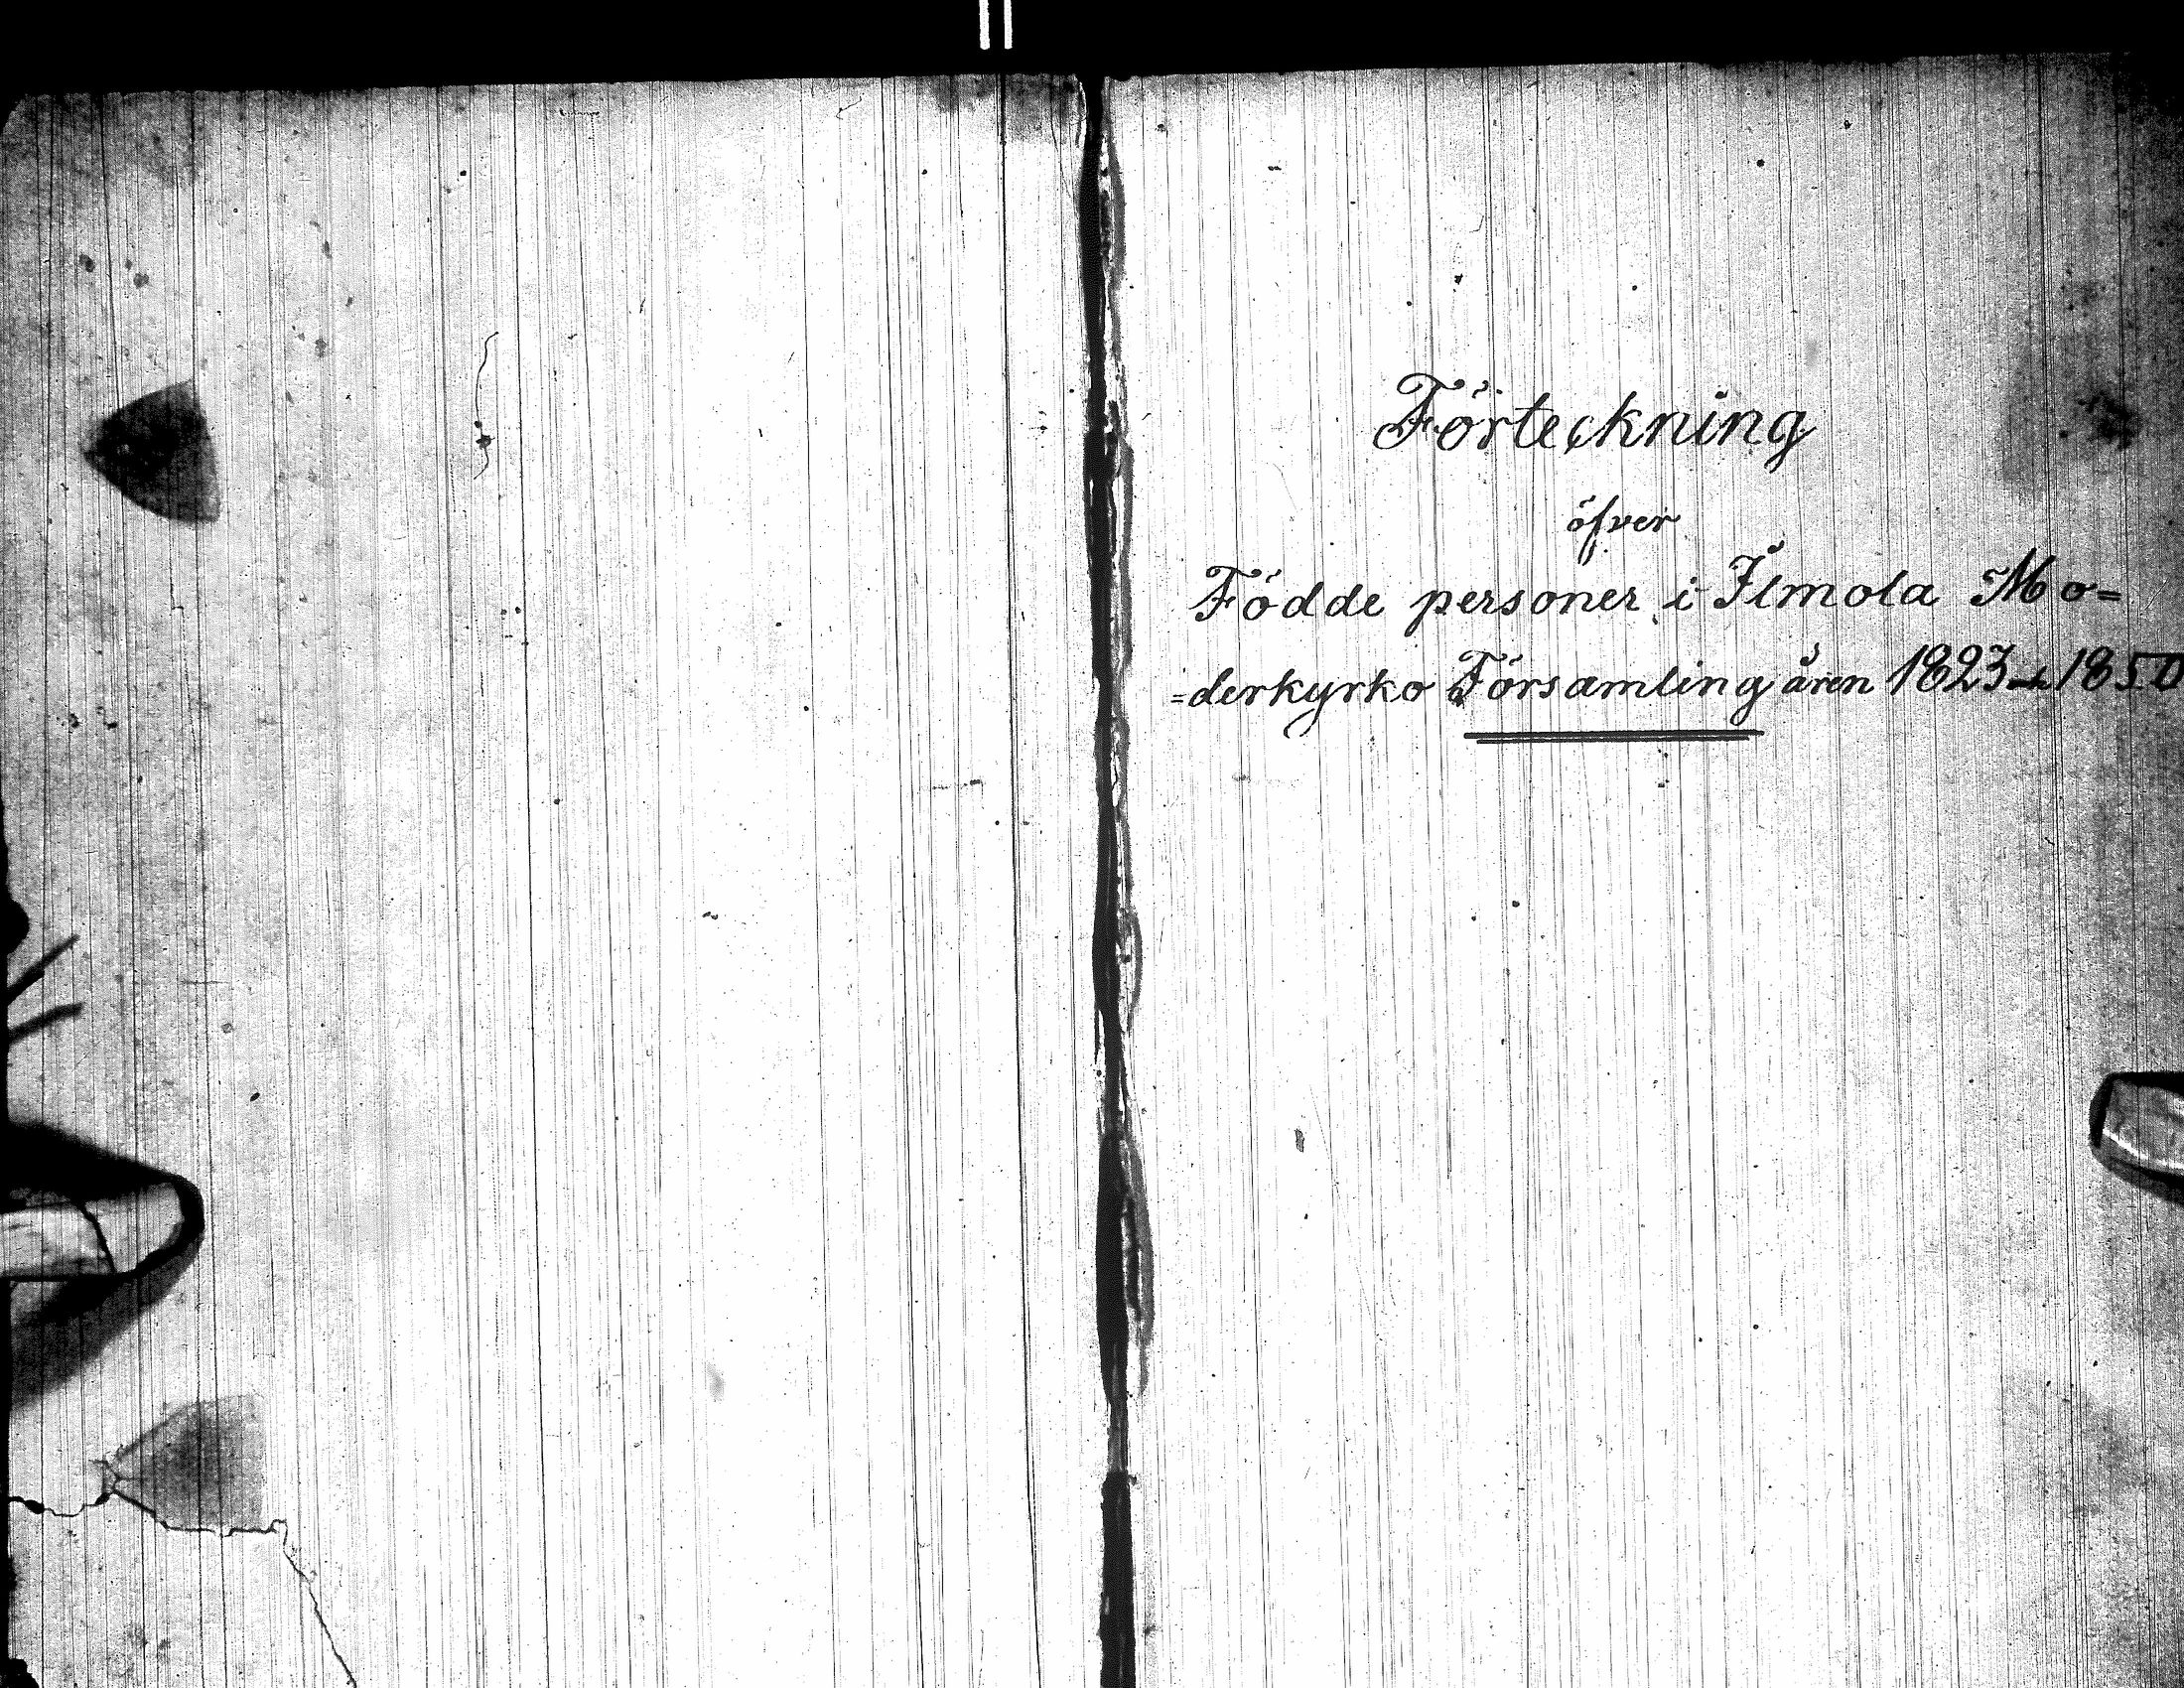 Förteckning
öfver
Födde personer i Ilmola Mo=
=derkyrko Församling åren 1823-1850